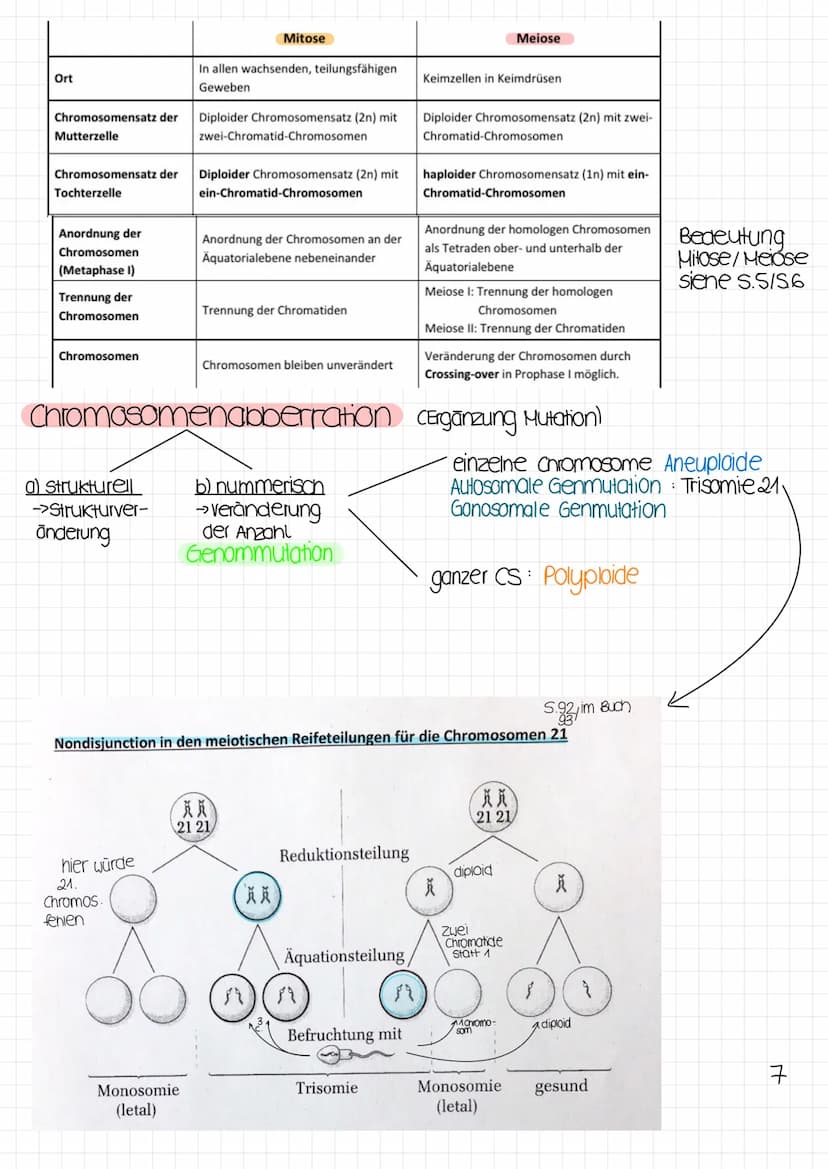 Mitose Meiose
Ort
In allen wachsenden, teilungsfähigen
Geweben
Keimzellen in Keimdrüsen
Chromosomensatz der
Mutterzelle
Diploider Chromosomensatz (2n) mit
zwei-Chromatid-Chromosomen
Diploider Chromosomensatz (2n) mit zwei-
Chromatid-Chromosomen
Chromosomensatz der
Tochterzelle
Diploider Chromosomensatz (2n) mit
ein-Chromatid-Chromosomen
haploider Chromosomensatz (1n) mit ein-
Chromatid-Chromosomen
Anordnung der
Chromosomen
(Metaphase I)
Anordnung der Chromosomen an der
Äquatorialebene nebeneinander
Anordnung der homologen Chromosomen
als Tetraden ober- und unterhalb der
Äquatorialebene
Trennung der
Chromosomen
Trennung der Chromatiden
Meiose I: Trennung der homologen
Chromosomen
Meiose II: Trennung der Chromatiden
Chromosomen
Chromosomen bleiben unverändert
Veränderung der Chromosomen durch
Crossing-over in Prophase I möglich.
Bedeutung
Mitose/Meiose
siehe S.5/S6
Chromosomenabberration (Ergänzung Mutation)
a) strukturell
->Strukturver-
änderung
b) nummerisch
->veränderung
der Anzahl
Genommutation
einzelne Chromosome Aneuploide
Autosomale Genmutation : Trisomie 21
Gonosomale Genmutation
ganzer CS: Polyploide
S.92, im Buch
93
Nondisjunction in den meiotischen Reifeteilungen für die Chromosomen 21
21 21
21 21
Reduktionsteilung
hier würde
21.
Chromos.
fehlen
diploid
zwei
Chromatide
statt 1
Äquationsteilung
3
1 Chromo-
som
diploid
Befruchtung mit
Monosomie
(letal)
Trisomie
Monosomie
(letal)
gesund
7